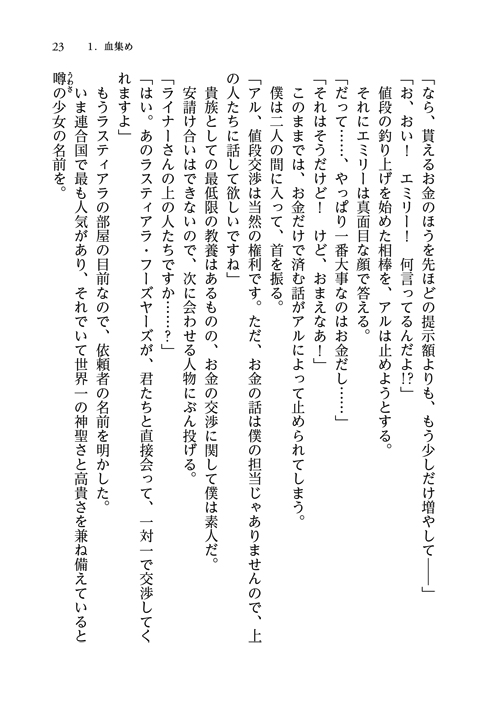 23　1．血集め
「なら、貰えるお金のほうを先ほどの提示額よりも、もう少しだけ増やして――」
「お、おい！　エミリー！　何言ってるんだよ!?」
値段の釣り上げを始めた相棒を、アルは止めようとする。
それにエミリーは真面目な顔で答える。
「だって……、やっぱり一番大事なのはお金だし……」
「それはそうだけど！　けど、おまえなあ！」
このままでは、お金だけで済む話がアルによって止められてしまう。
僕は二人の間に入って、首を振る。
「アル、値段交渉は当然の権利です。ただ、お金の話は僕の担当じゃありませんので、上
の人たちに話して欲しいですね」
貴族としての最低限の教養はあるものの、お金の交渉に関して僕は素人だ。
安請け合いはできないので、次に会わせる人物にぶん投げる。
「ライナーさんの上の人たちですか……？」
「はい。あのラスティアラ・フーズヤーズが、君たちと直接会って、一対一で交渉してく
れますよ」
もうラスティアラの部屋の目前なので、依頼者の名前を明かした。
いま連合国で最も人気があり、それでいて世界一の神聖さと高貴さを兼ね備えていると
噂の少女の名前を。
うわさ